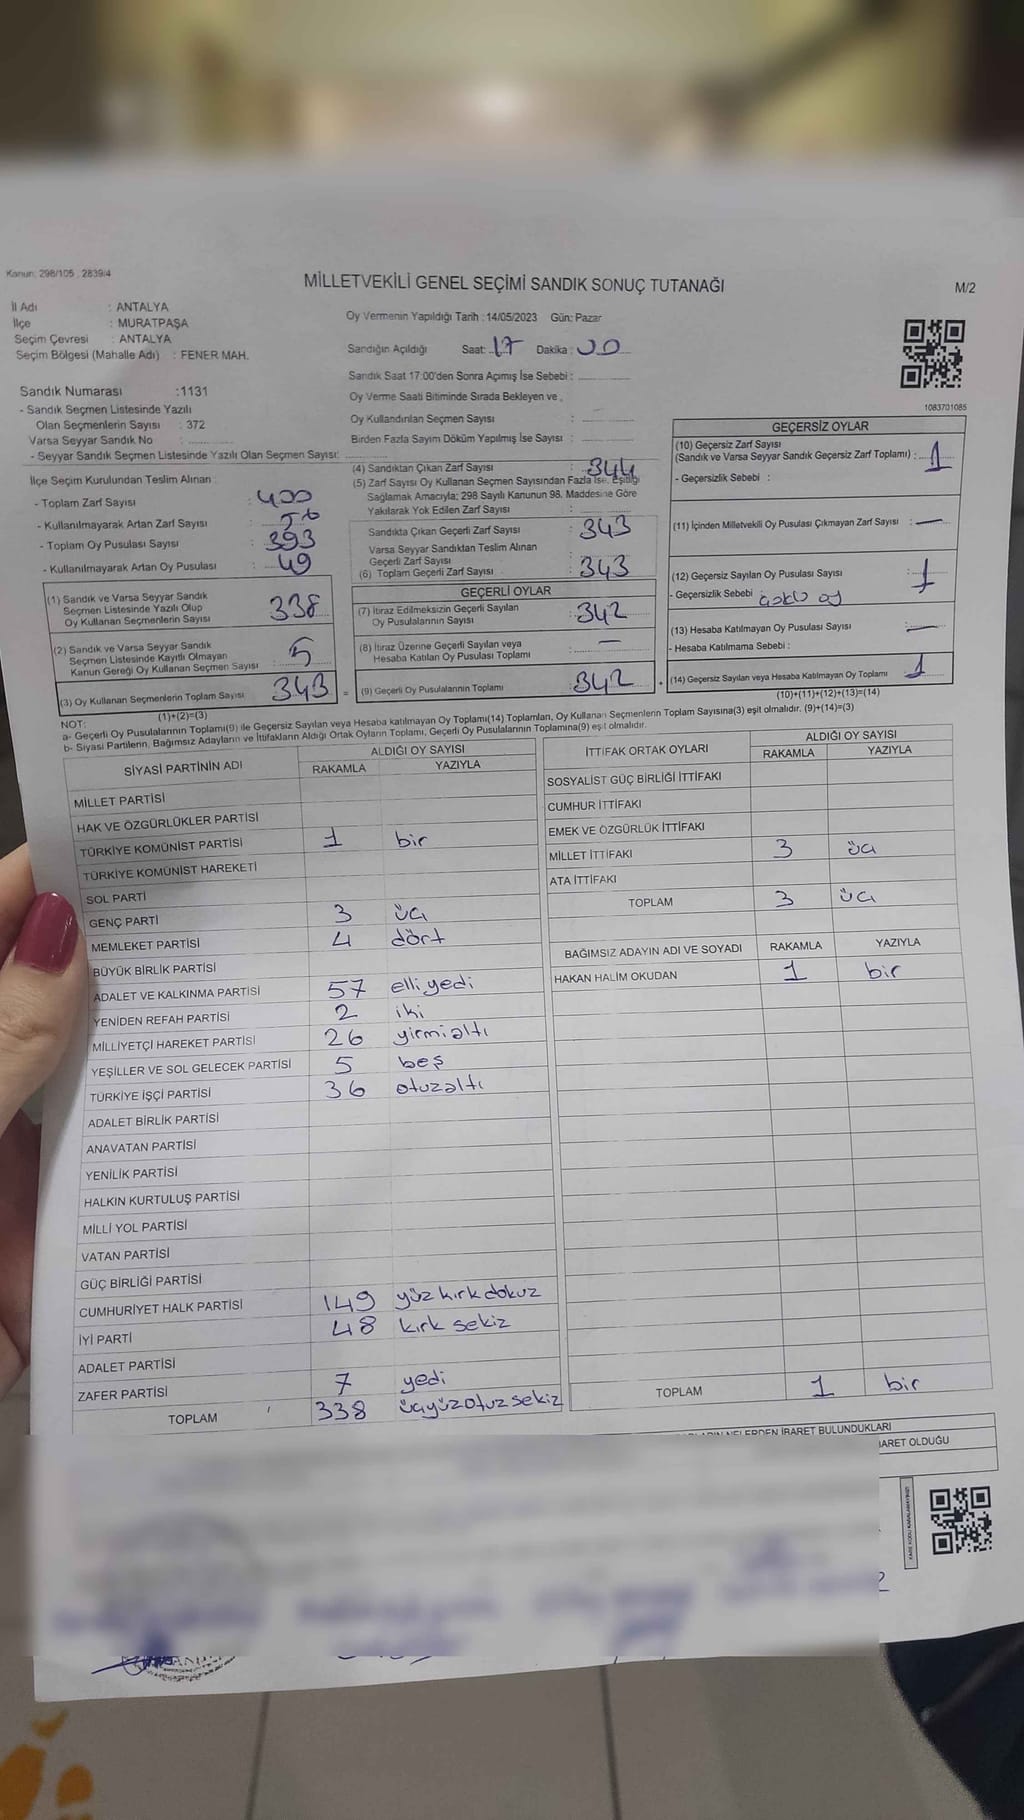 Kanun: 298/105 , 2839/4
MİLLETVEKİLİ GENEL SEÇİMİ SANDIK SONUÇ TUTANAĞI
M/2
İl Adı : ANTALYA
İlçe : MURATPAŞA
Seçim Çevresi : ANTALYA
Seçim Bölgesi (Mahalle Adı) : FENER MAH.
Sandık Numarası :1131
- Sandık Seçmen Listesinde Yazılı
Olan Seçmenlerin Sayısı : 372
Varsa Seyyar Sandık No :
- Seyyar Sandık Seçmen Listesinde Yazılı Olan Seçmen Sayısı:
İlçe Seçim Kurulundan Teslim Alınan :
- Toplam Zarf Sayısı : 400
- Kullanılmayarak Artan Zarf Sayısı : 56
- Toplam Oy Pusulası Sayısı : 393
- Kullanılmayarak Artan Oy Pusulası : 49
(1) Sandık ve Varsa Seyyar Sandık
Seçmen Listesinde Yazılı Olup
Oy Kullanan Seçmenlerin Sayısı : 338
(2) Sandık ve Varsa Seyyar Sandık
Seçmen Listesinde Kayıtlı Olmayan
Kanun Gereği Oy Kullanan Seçmen Sayısı : 5
(3) Oy Kullanan Seçmenlerin Toplam Sayısı 343
(1)+(2)=(3)
Oy Vermenin Yapıldığı Tarih :14/05/2023 Gün: Pazar
Sandığın Açıldığı Saat: 17 Dakika : 00
Sandık Saat 17:00'den Sonra Açımış İse Sebebi :
Oy Verme Saati Bitiminde Sırada Bekleyen ve
Oy Kullandırılan Seçmen Sayısı :
Birden Fazla Sayım Döküm Yapılmış İse Sayısı :
(4) Sandıktan Çıkan Zarf Sayısı : 344
(5) Zarf Sayısı Oy Kullanan Seçmen Sayısından Fazla İse, Eşitliği
Sağlamak Amacıyla; 298 Sayılı Kanunun 98. Maddesine Göre
Yakılarak Yok Edilen Zarf Sayısı :
Sandıkta Çıkan Geçerli Zarf Sayısı : 343
Varsa Seyyar Sandıktan Teslim Alınan
Geçerli Zarf Sayısı :
(6) Toplam Geçerli Zarf Sayısı : 343
GEÇERLİ OYLAR
(7) İtiraz Edilmeksizin Geçerli Sayılan
Oy Pusulalarının Sayısı : 342
(8) İtiraz Üzerine Geçerli Sayılan veya
Hesaba Katılan Oy Pusulası Toplamı : —
= (9) Geçerli Oy Pusulalarının Toplamı 342 +
1083701085
GEÇERSİZ OYLAR
(10) Geçersiz Zarf Sayısı
(Sandık ve Varsa Seyyar Sandık Geçersiz Zarf Toplamı) : 1
- Geçersizlik Sebebi :
(11) İçinden Milletvekili Oy Pusulası Çıkmayan Zarf Sayısı : —
(12) Geçersiz Sayılan Oy Pusulası Sayısı : 1
- Geçersizlik Sebebi : çoklu oy
(13) Hesaba Katılmayan Oy Pusulası Sayısı : —
- Hesaba Katılmama Sebebi :
(14) Geçersiz Sayılan veya Hesaba Katılmayan Oy Toplamı 1
(10)+(11)+(12)+(13)=(14)
NOT:
a- Geçerli Oy Pusulalarının Toplamı(9) ile Geçersiz Sayılan veya Hesaba katılmayan Oy Toplamı(14) Toplamları, Oy Kullanan Seçmenlerin Toplam Sayısına(3) eşit olmalıdır. (9)+(14)=(3)
b- Siyasi Partilerin, Bağımsız Adayların ve İttifakların Aldığı Ortak Oyların Toplamı, Geçerli Oy Pusulalarının Toplamına(9) eşit olmalıdır.
SİYASİ PARTİNİN ADI ALDIĞI OY SAYISI
RAKAMLA YAZIYLA
MİLLET PARTİSİ
HAK VE ÖZGÜRLÜKLER PARTİSİ
TÜRKİYE KOMÜNİST PARTİSİ 1 bir
TÜRKİYE KOMÜNİST HAREKETİ
SOL PARTİ
GENÇ PARTİ 3 üç
MEMLEKET PARTİSİ 4 dört
BÜYÜK BİRLİK PARTİSİ
ADALET VE KALKINMA PARTİSİ 57 elliyedi
YENİDEN REFAH PARTİSİ 2 iki
MİLLİYETÇİ HAREKET PARTİSİ 26 yirmialtı
YEŞİLLER VE SOL GELECEK PARTİSİ 5 beş
TÜRKİYE İŞÇİ PARTİSİ 36 otuzaltı
ADALET BİRLİK PARTİSİ
ANAVATAN PARTİSİ
YENİLİK PARTİSİ
HALKIN KURTULUŞ PARTİSİ
MİLLİ YOL PARTİSİ
VATAN PARTİSİ
GÜÇ BİRLİĞİ PARTİSİ
CUMHURİYET HALK PARTİSİ 149 yüz kırk dokuz
İYİ PARTİ 48 kırk sekiz
ADALET PARTİSİ
ZAFER PARTİSİ 7 yedi
TOPLAM 338 üçyüzotuzsekiz
İTTİFAK ORTAK OYLARI ALDIĞI OY SAYISI
RAKAMLA YAZIYLA
SOSYALİST GÜÇ BİRLİĞİ İTTİFAKI
CUMHUR İTTİFAKI
EMEK VE ÖZGÜRLÜK İTTİFAKI
MİLLET İTTİFAKI 3 üç
ATA İTTİFAKI
TOPLAM 3 üç
BAĞIMSIZ ADAYIN ADI VE SOYADI RAKAMLA YAZIYLA
HAKAN HALİM OKUDAN 1 bir
TOPLAM 1 bir
NELERDEN İBARET BULUNDUKLARI
İBARET OLDUĞU